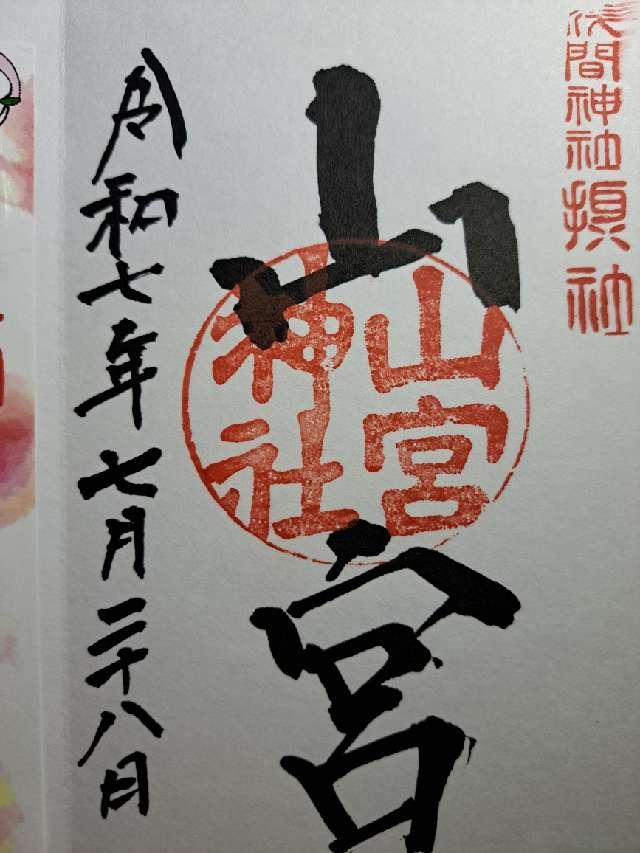 浅間神社摂社
山宮
山宮
神社
令和七年七月二十八日